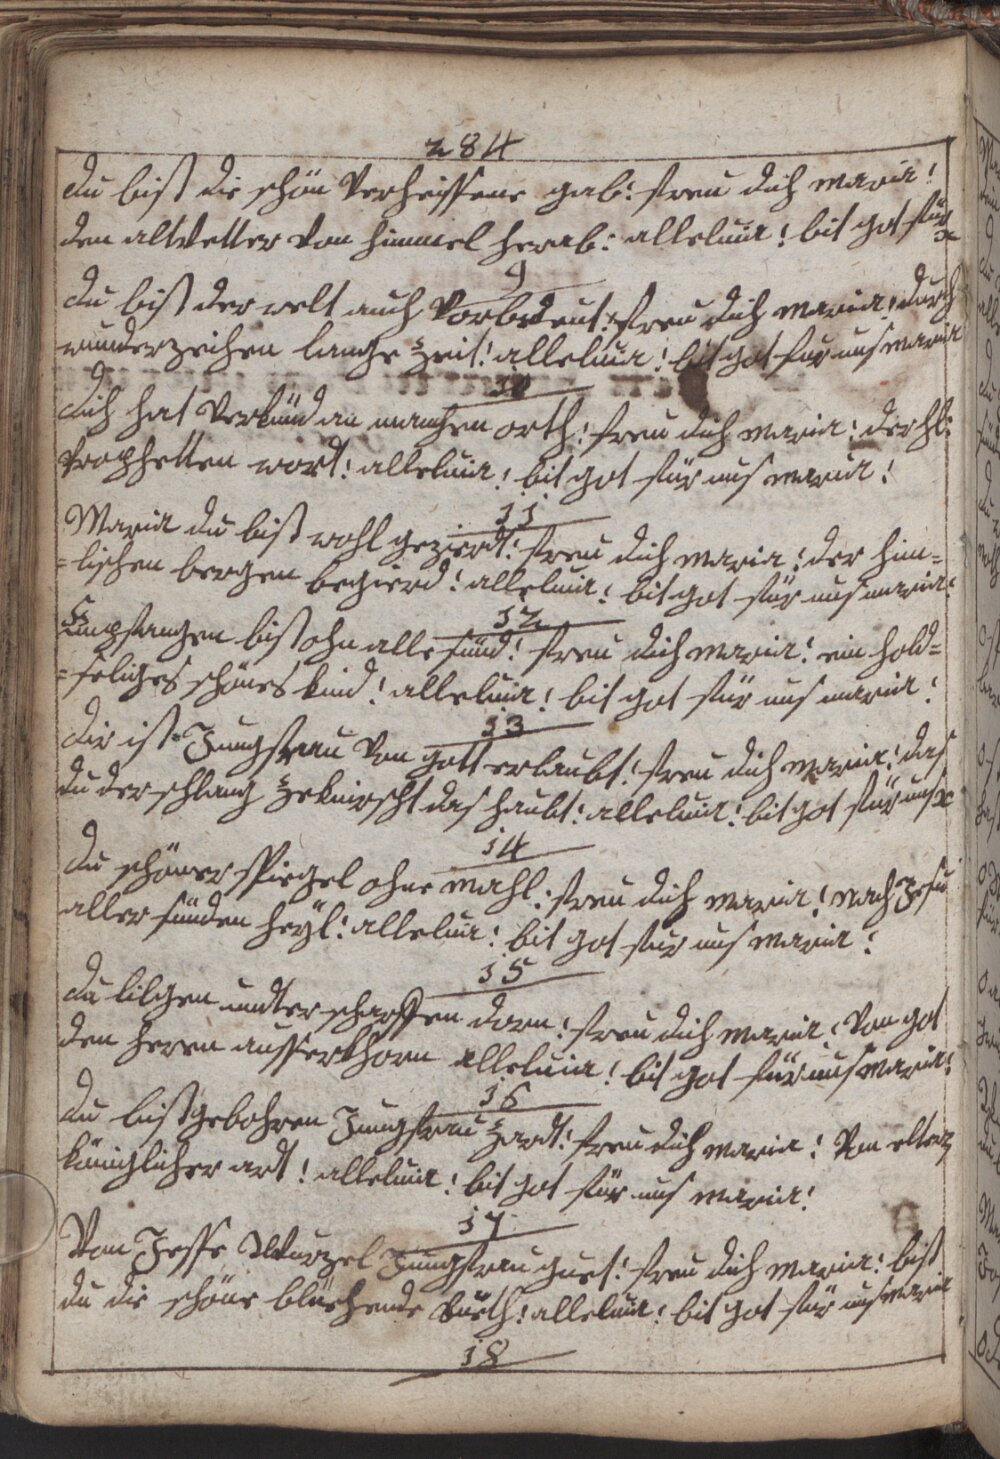 284
du bist die schön Verheissene gab: freu dich maria!
den altvetter von himmel herab: alleluia! bit got für
9
du bist der welt auch Vorbedeut: freu dich maria! durch
wunderzeichen lange Zeit! alleluia! bit got für uns maria
10
dich hat Verkünd an manchen orth! freu dich maria! der hl:
Prophetten wort! alleluia! bit got für uns maria!
11
Maria du bist wohl gezierdt! freu dich maria! der him=
=lischen bergen begierd! alleluia! bit got für uns maria!
12
Empfangen bist ohn alle sünd! freu dich maria! ein hold=
=seliges schönes kind! alleluia! bit got für uns maria!
13
dir ist Jungfrau Von gott erlaubt! freu dich maria! das
du der schlang Zeknirscht das haubt! alleluia! bit got für uns
14
du schöner spiegel ohne mahl: freu dich maria! nach Jesu
aller sünden heyl! alleluia! bit got für uns maria!
15
du lilgen undter scharffen dorn! freu dich maria! Von got
den heren ausserkhorn alleluia! bit got für uns maria!
16
du bist gebohren Jungfrau Zardt! freu dich maria! Von elter
königlicher ardt! alleluia! bit got für uns maria!
17
Von Jesse Wurzel Jungfrau guet! freu dich maria! bist
du die schöne blüehende rueth! alleluia! bit got für uns maria
18